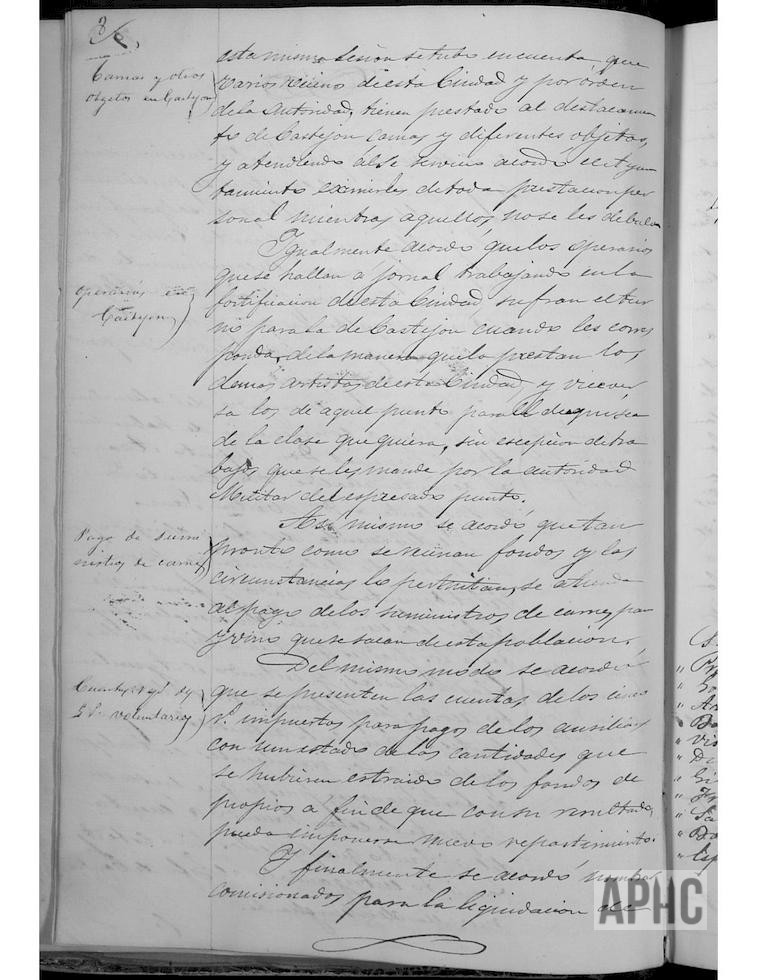 Camas y otros
objetos en Castejon
esta misma sesion se tubo en cuenta, que
varios vecinos de esta Ciudad y por orden
de la autoridad, tienen prestado al destacamen
to de Castejon camas y diferentes objetos,
y atendiendo a este servicio acordó el Ayun
tamiento eximirles de toda prestacion per
sonal mientras aquellos, no se les debuelva
Operarios en
Castejon
Igualmente acordó que los operarios
que se hallan a jornal trabajando en la
fortificacion de esta Ciudad sufran el tur
no para la de Castejon cuando les corres
ponda, de la manera que lo prestan los
demas artistas de esta Ciudad, y vicever
sa los de aquel punto para el de aqui sea
de la clase que quiera, sin escepcion de tra
bajos que se les mande por la autoridad
Militar del espresado punto.
Pago de sumi
nistros de carnes
Asi mismo se acordó que tan
pronto como se reunan fondos y las
circunstancias lo permitan, se atienda
al pago de los suministros de carnes, pan
y vino que se sacan de esta poblacion.
Cuentas
voluntarios
Del mismo modo se acordó
que se presenten las cuentas de los cinco
r.s impuestos para pagos de los ausilios
con un estado de las cantidades que
se hubieren estraido de los fondos de
propios a fin de que con su resultado,
pueda imponerse nuevo repartimiento.
Y finalmente se acordó nombrar
comisionados para la liquidacion de
APHC